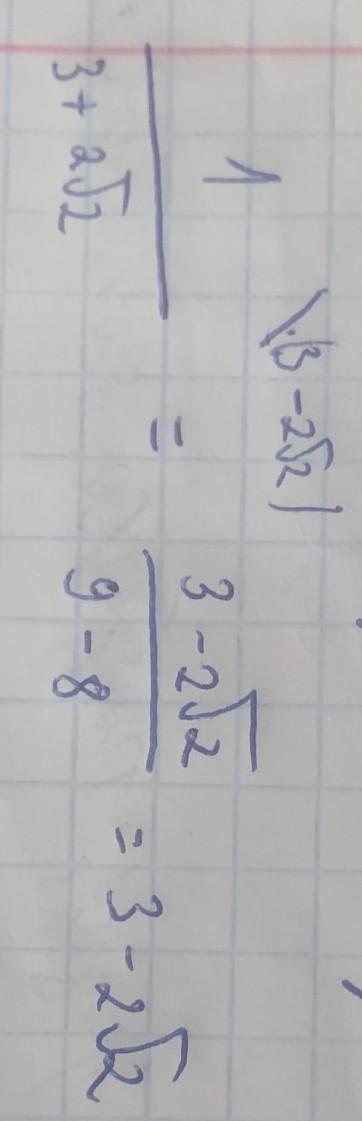 \(3 - 2√2)
1 / (3 + 2√2) = (3 - 2√2) / (9 - 8) = 3 - 2√2